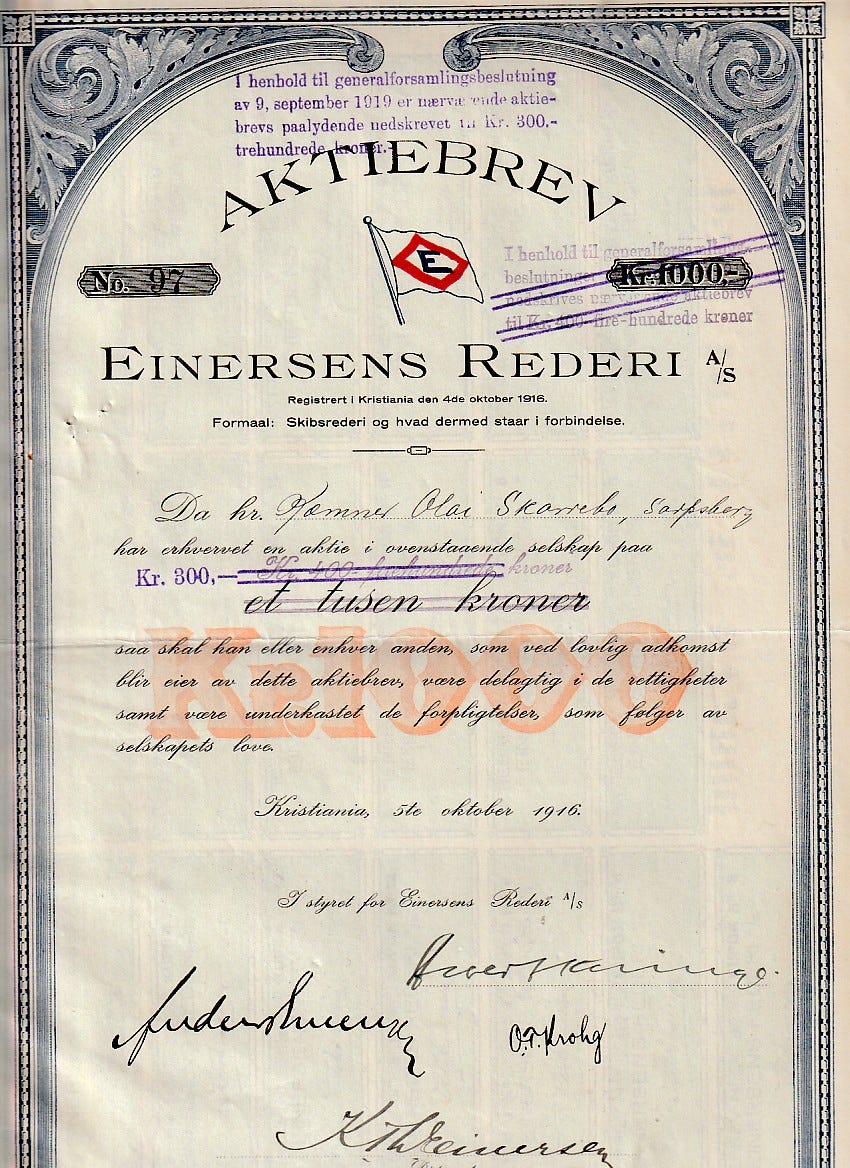 I henhold til generalforsamlingsbeslutning
av 9, september 1919 er nærværende aktie-
brevs paalydende nedskrevet til Kr. 300.-
trehundrede kroner.-
AKTIEBREV
E
No. 97
Kr. 1000,-
I henhold til generalforsamlings-
beslutning
nedskrives nærværende aktiebrev
til Kr. 400-fire-hundrede kroner
EINERSENS REDERI A/S
Registrert i Kristiania den 4de oktober 1916.
Formaal: Skibsrederi og hvad dermed staar i forbindelse.
Da hr. Kæmner Olai Skarrebo, Sarpsborg
har erhvervet en aktie i ovenstaaende selskap paa
Kr. 300,- Kr. 400- firehundrede kroner
et tusen kroner
Kr. 1000
saa skal han eller enhver anden, som ved lovlig adkomst
blir eier av dette aktiebrev, være delagtig i de rettigheter
samt være underkastet de forpligtelser, som følger av
selskapets love.
Kristiania, 5te oktober 1916.
I styret for Einersens Rederi A/S
O.T. Krohg
Einersen